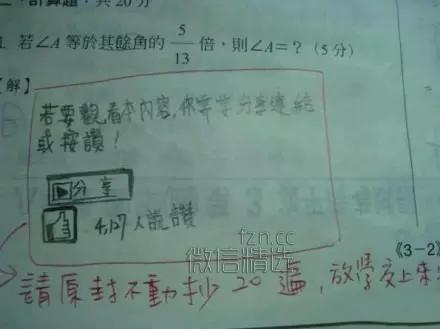 二、計算題：共20分
1. 若∠A 等於其餘角的 5/13 倍，則∠A＝？（5分）
【解】
若要觀看本內容，你需要分享連結
或按讚！
分享
4,127人說讚
fzn.cc
微信精选
《3-2》
請原封不動抄20遍，放學交上來